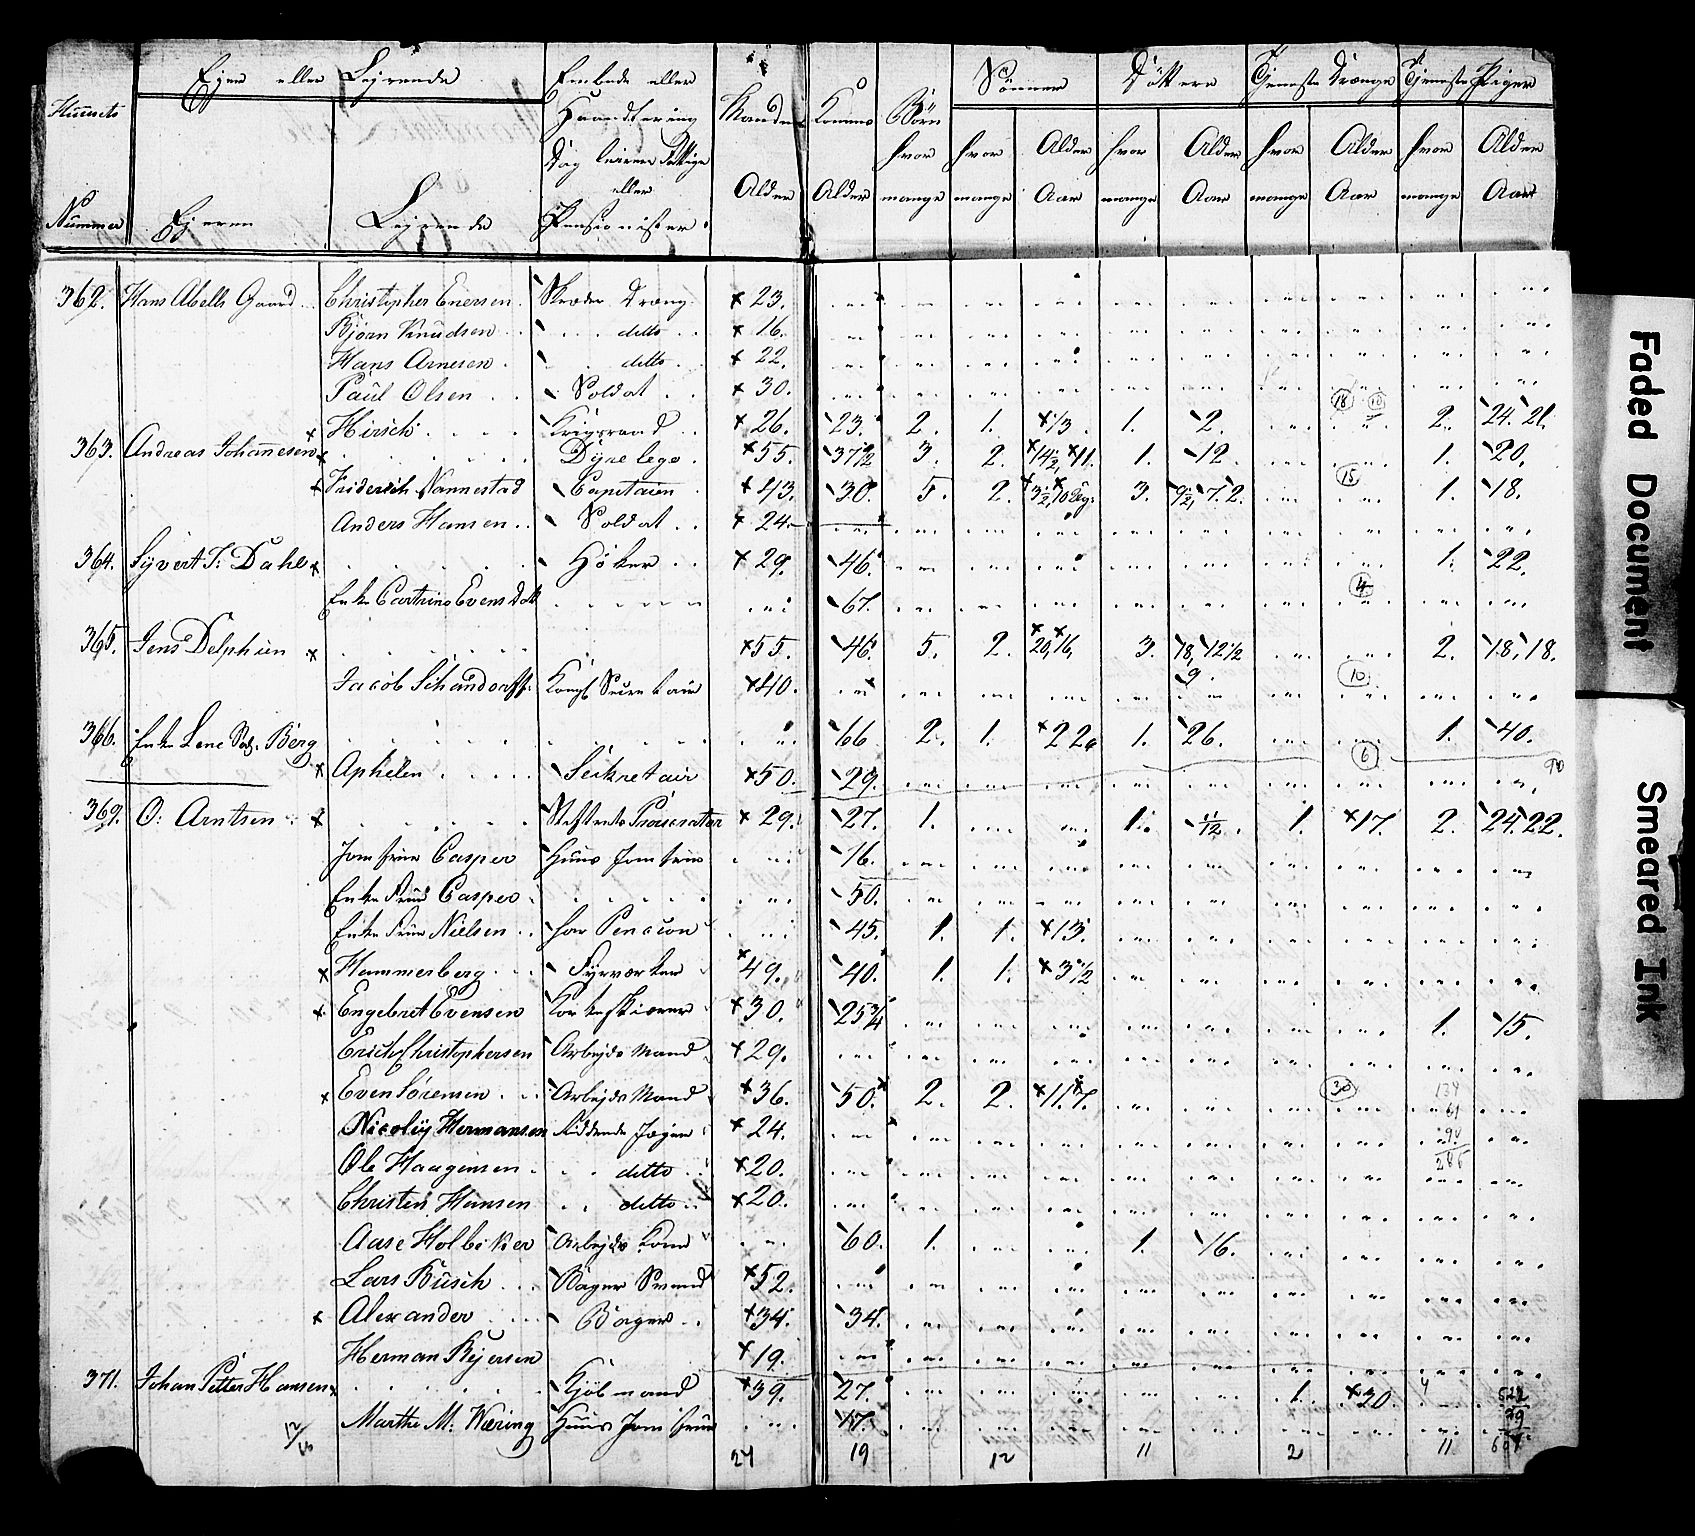 Ejer eller Lejende
Huusets Nummer
Ejeren
Lejende
Embede eller Haandtering
eller
Pensionister
Mandens Alder
Konens Alder
Børn hvor mange
Sønner hvor mange Alder Aar
Døttere hvor mange Alder Aar
Tjeneste Drænge hvor mange Alder Aar
Tjeneste Piger hvor mange Alder Aar
362. Hans Abells Gaard Christopher Enersen Skræder Dræng 23.
Bjørn Knudsen ditto 16.
Hans Arnesen ditto 22.
Paul Olsen Soldat 30.
Hirsch 26. 23. 2. 1. 13. 1. 2. 2. 24. 21.
363. Andreas Johannesen 55. 37 1/2 3. 2. 14 1/2 11. 1. 12. 1. 20.
Friderich Nannestad Capitaien 43. 30. 5. 2. 3. 7. 2. 1. 18.
Anders Hansen Soldat 24
364. Syvert J: Dahl Høker 29. 46. 1. 22.
Enke Cathrine Evens Datt 67.
365. Jens Delphien 55. 46. 5. 2. 20, 16, 3. 18, 12 1/2 9. 2. 18. 18.
Jacob Schandorff 40.
366. Enke Lene Berg 66 2. 1. 22. 1. 26. 1. 40.
Aphelen Seikretair 50. 29.
369. O: Arntsen Procurator 29. 27. 1. 1. 11/12. 1. 17. 2. 24. 22.
Jomfrue Casper Huus Jomfrue 16.
Enke Frue Casper 50.
Enke Frue Nielsen har Pencion 45. 1. 1. 13.
Hammerberg Fyrverker 49. 40. 1. 1. 3 1/2
Engebret Evensen 30. 25 3/4 1. 15.
Erich Christophersen Arbejds Mand 29.
Even Sørensen Arbejds Mand 36. 50. 2. 2. 11. 7.
Nicolay Hermansen Riddende Jæger 24.
Ole Haagensen ditto 20.
Christen Hansen ditto 20.
Aase Holbeker Arbejds Kone 60. 1. 1. 16.
Lars Busch Bager Svend 52.
Alexander Bager 34. 34.
Herman Bejersen 19.
371. Johan Petter Hansen Kjøbmand 39. 27. 1. 20.
Marthe M: Wæring Huus Jomfrue 17.
24 19 12 11 2 11
Faded Document
Smeared Ink